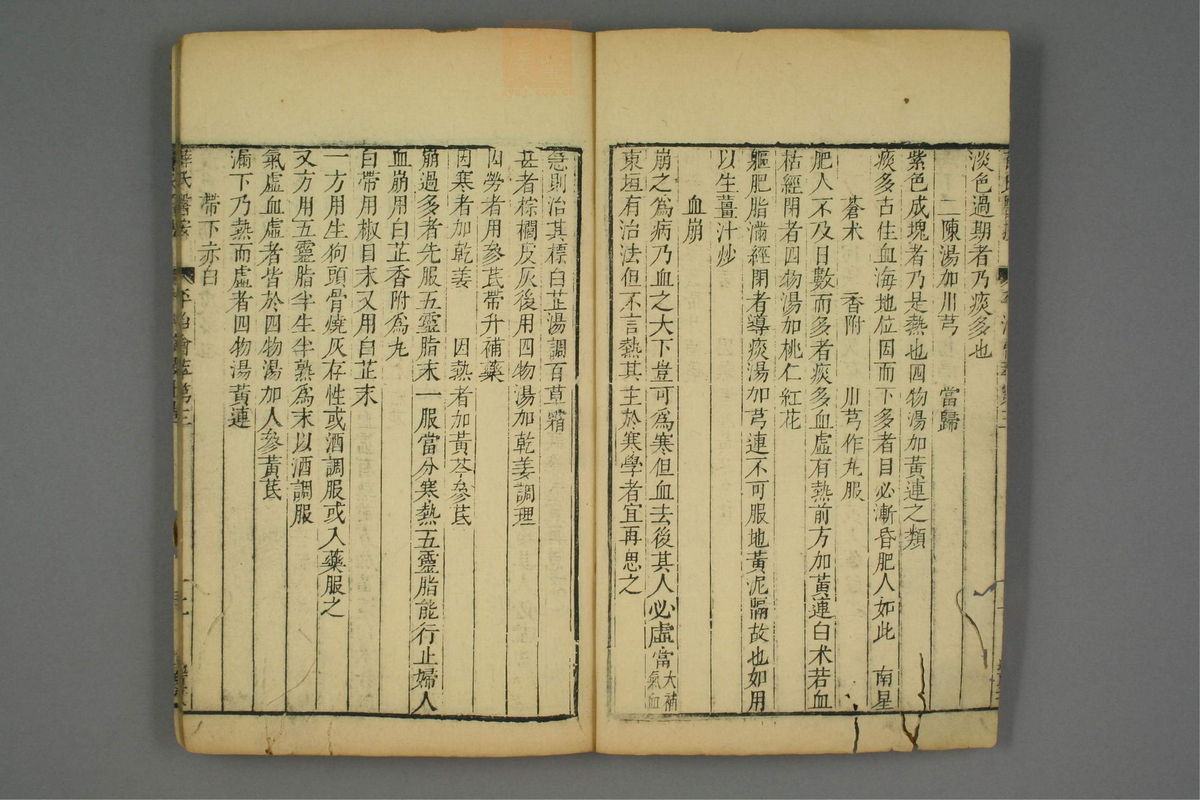 淡色過期者乃痰多也
二陳湯加川芎　當歸
紫色成塊者乃是熱也四物湯加黃連之類
痰多占住血海地位因而下多者目必漸昏肥人如此　南星
蒼术　香附　川芎作丸服
肥人不及日數而多者痰多血虛有熱前方加黃連白术若血
枯經閉者四物湯加桃仁紅花
軀肥脂滿經閉者導痰湯加芎連不可服地黃泥膈故也如用
以生薑汁炒
血崩
崩之爲病乃血之大下豈可爲寒但血去後其人必虛當大補氣血
東垣有治法但不言熱其主於寒學者宜再思之
急則治其標白芷湯調百草霜
甚者棕櫚皮灰後用四物湯加乾姜調理
因勞者用參芪帶升補藥
因寒者加乾姜　因熱者加黃芩參芪
崩過多者先服五靈脂末一服當分寒熱五靈脂能行止婦人
血崩用白芷香附爲丸
白帶用椒目末又用白芷末
一方用生狗頭骨燒灰存性或酒調服或入藥服之
又方用五靈脂半生半熟爲末以酒調服
氣虛血虛者皆於四物湯加人參黃芪
漏下乃熱而虛者四物湯黃連
帶下赤白
薛氏醫案
平治會萃　第三